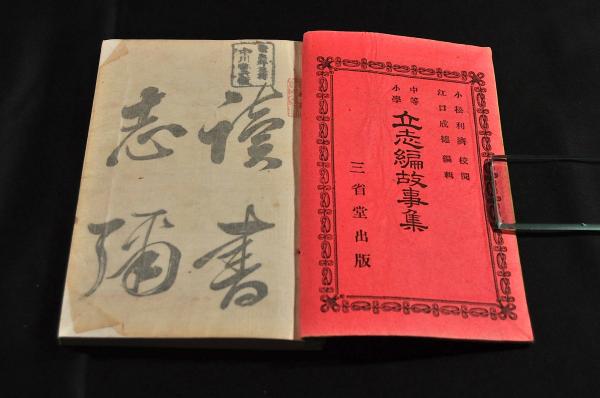 小松利濟 校閲
江口成德 編輯
中等
小學
立志編故事集
三省堂出版
讀書
志彌